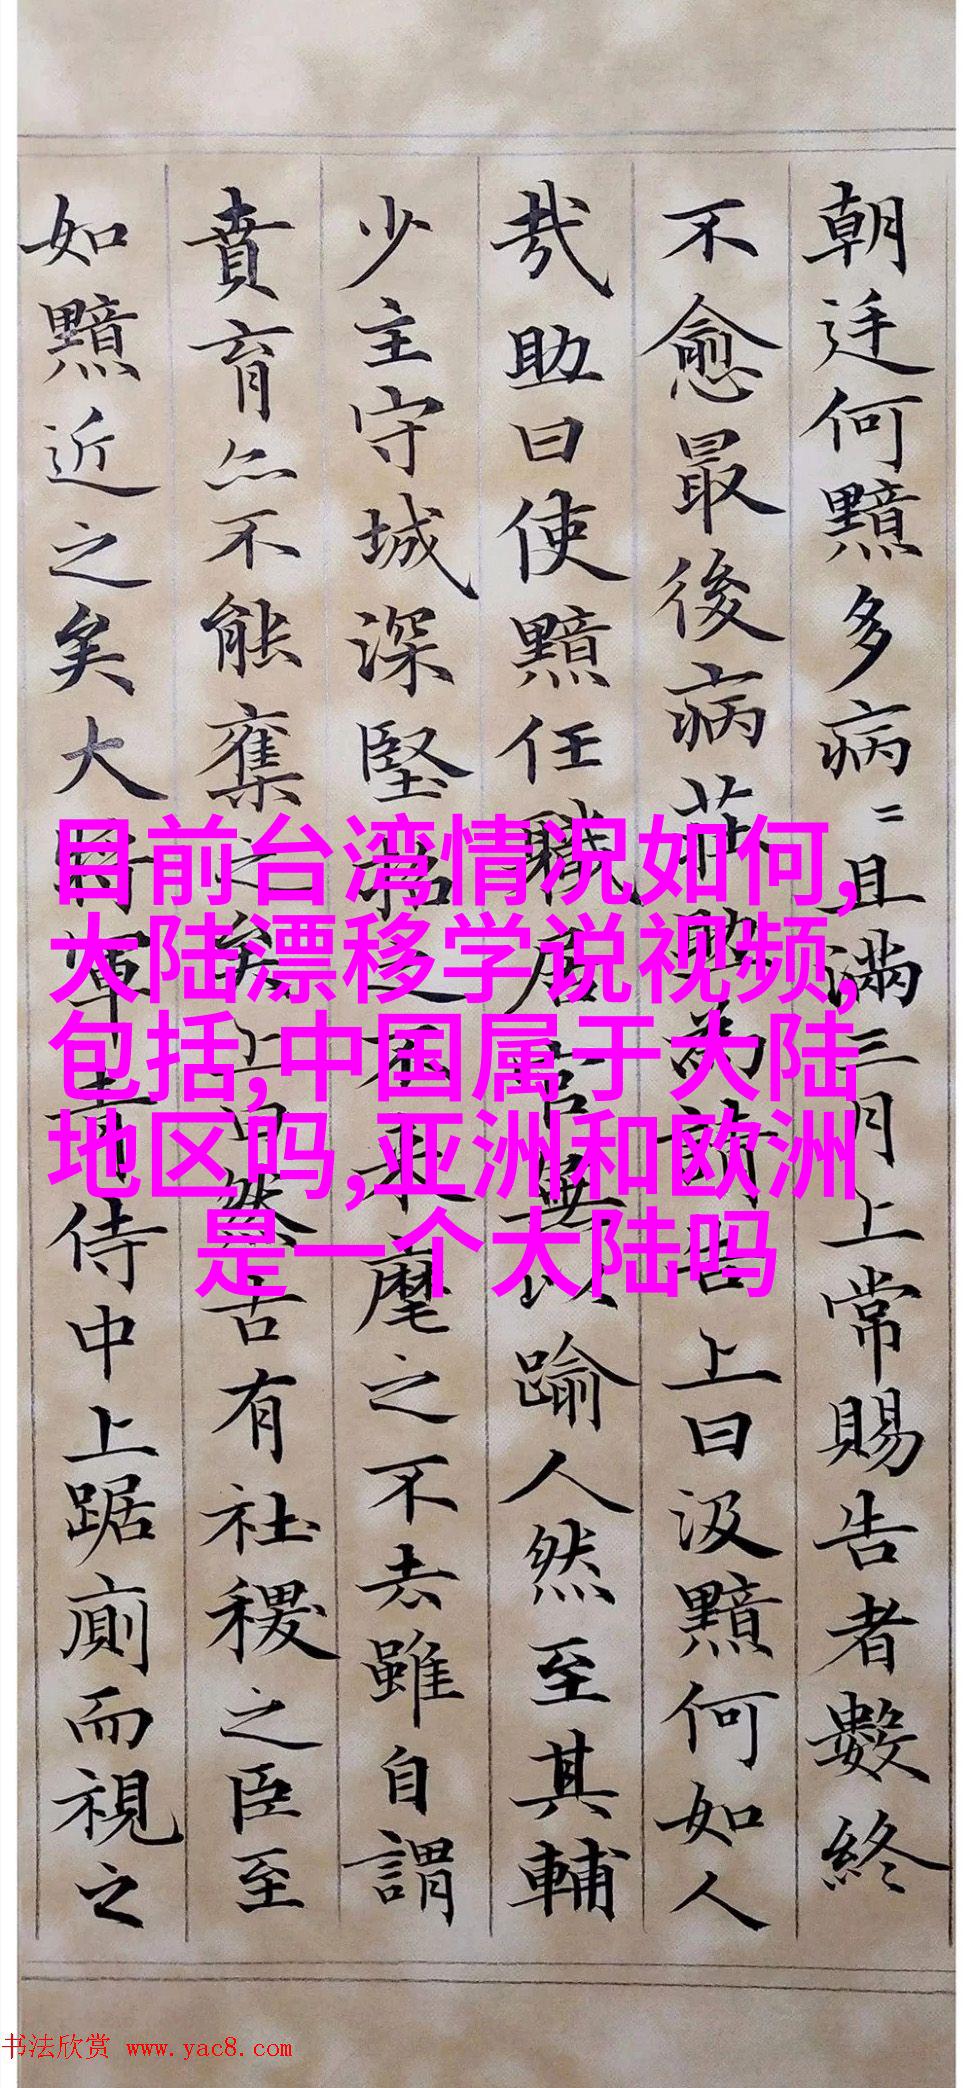 朝廷何黯多病〻且滿三月上常賜告者數終
不愈最後病莊助為請告上曰汲黯何如人
哉助曰使黯任職居官無以踰人然至其輔
少主守城深堅招之不來麾之不去雖自謂
賁育亦不能奪之矣上曰然古有社稷之臣至
如黯近之矣大將軍青侍中上踞廁而視之
目前台湾情况如何,
大陆漂移学说视频,
包括,中国属于大陆
地区吗,亚洲和欧洲
是一个大陆吗
书法欣赏 www.yac8.com